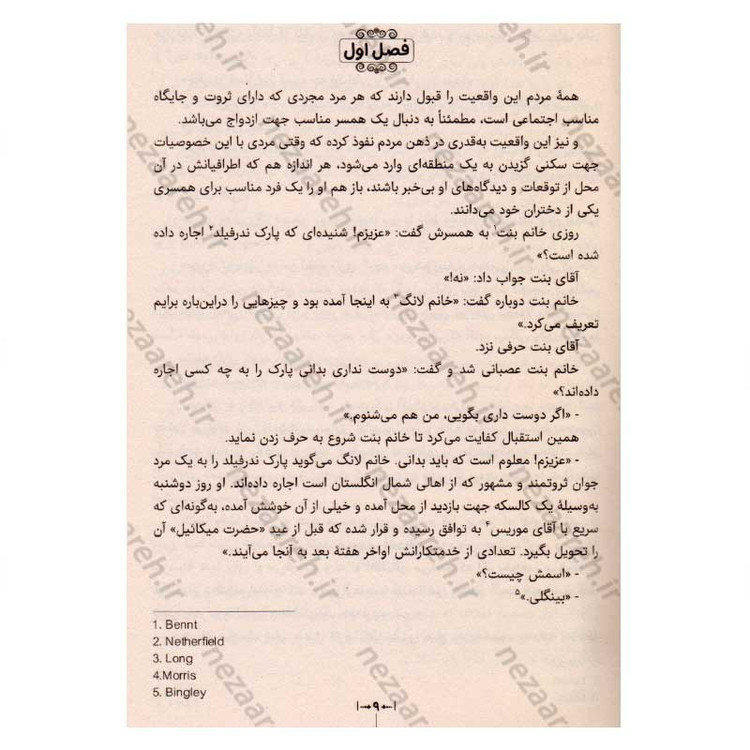 فصل اول
همهٔ مردم این واقعیت را قبول دارند که هر مرد مجردی که دارای ثروت و جایگاه
مناسب اجتماعی است، مطمئناً به دنبال یک همسر مناسب جهت ازدواج می‌باشد.
و نیز این واقعیت به‌قدری در ذهن مردم نفوذ کرده که وقتی مردی با این خصوصیات
جهت سکنی گزیدن به یک منطقه‌ای وارد می‌شود، هر اندازه هم که اطرافیانش در آن
محل از توقعات و دیدگاه‌های او بی‌خبر باشند، باز هم او را یک فرد مناسب برای همسری
یکی از دختران خود می‌دانند.
روزی خانم بنت۱ به همسرش گفت: «عزیزم! شنیده‌ای که پارک ندرفیلد۲ اجاره داده
شده است؟»
آقای بنت جواب داد: «نه!»
خانم بنت دوباره گفت: «خانم لانگ۳ به اینجا آمده بود و چیزهایی را دراین‌باره برایم
تعریف می‌کرد.»
آقای بنت حرفی نزد.
خانم بنت عصبانی شد و گفت: «دوست نداری بدانی پارک را به چه کسی اجاره
داده‌اند؟»
- «اگر دوست داری بگویی، من هم می‌شنوم.»
همین استقبال کفایت می‌کرد تا خانم بنت شروع به حرف زدن نماید.
- «عزیزم! معلوم است که باید بدانی. خانم لانگ می‌گوید پارک ندرفیلد را به یک مرد
جوان ثروتمند و مشهور که از اهالی شمال انگلستان است اجاره داده‌اند. او روز دوشنبه
به‌وسیلهٔ یک کالسکه جهت بازدید از محل آمده و خیلی از آن خوشش آمده، به‌گونه‌ای که
سریع با آقای موریس۴ به توافق رسیده و قرار شده که قبل از عید «حضرت میکائیل» آن
را تحویل بگیرد. تعدادی از خدمتکارانش اواخر هفتهٔ بعد به آنجا می‌آیند.»
- «اسمش چیست؟»
- «بینگلی.»۵
1. Bennt
2. Netherfield
3. Long
4.Morris
5. Bingley
۹
nezaareh.ir